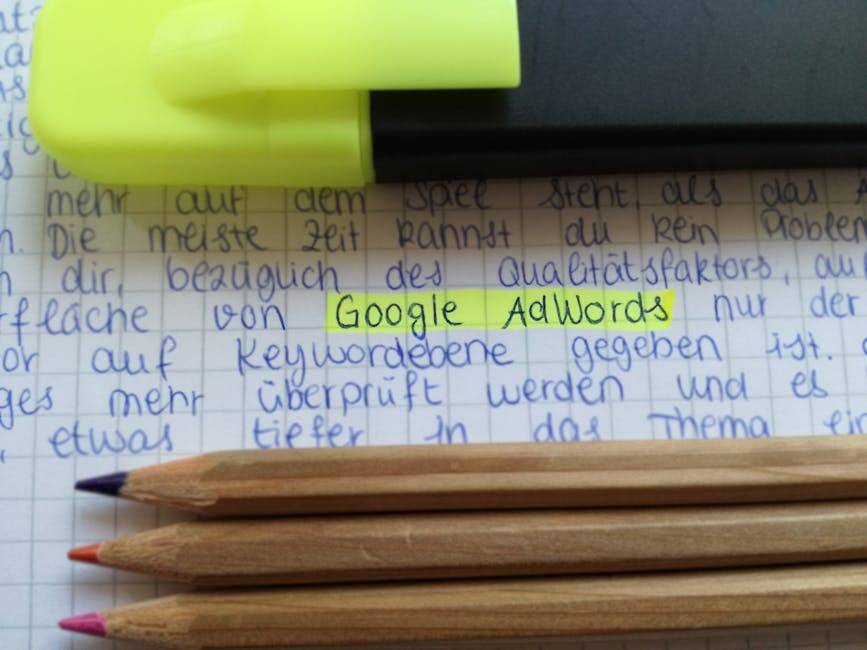 mehr auf dem Spiel steht, als das
Die meiste Zeit kannst du kein Problem
dir, bezüglich des Qualitätsfaktors, auf
rfläche von Google AdWords nur der
or auf Keywordebene gegeben ist.
ges mehr überprüft werden und es
, etwas tiefer in das Thema ein